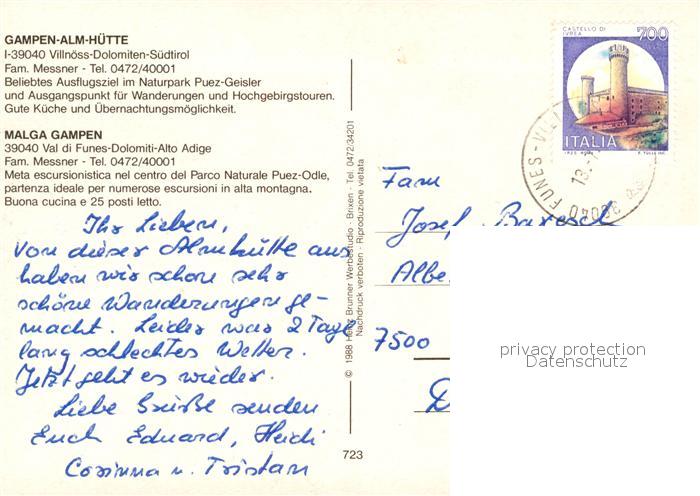 GAMPEN-ALM-HÜTTE
I-39040 Villnöss-Dolomiten-Südtirol
Fam. Messner - Tel. 0472/40001
Beliebtes Ausflugsziel im Naturpark Puez-Geisler
und Ausgangspunkt für Wanderungen und Hochgebirgstouren.
Gute Küche und Übernachtungsmöglichkeit.
MALGA GAMPEN
39040 Val di Funes-Dolomiti-Alto Adige
Fam. Messner - Tel. 0472/40001
Meta escursionistica nel centro del Parco Naturale Puez-Odle,
partenza ideale per numerose escursioni in alta montagna.
Buona cucina e 25 posti letto.
Ihr Lieben,
von dieser Almhütte aus
haben wir schon sehr
schöne Wanderungen ge-
macht. Leider war 2 Tage
lang schlechtes Wetter.
Jetzt geht es wieder.
Liebe Grüße senden
Euch Eduard, Heidi
Corinna u. Tristan
© 1988 Heinz Brunner Werbestudio - Brixen - Tel. 0472/34201
Nachdruck verboten - Riproduzione vietata
723
CASTELLO DI
IVREA
700
ITALIA
39040 FUNES-VIL
Fam
Josef
Albe
7500
D
privacy protection
Datenschutz